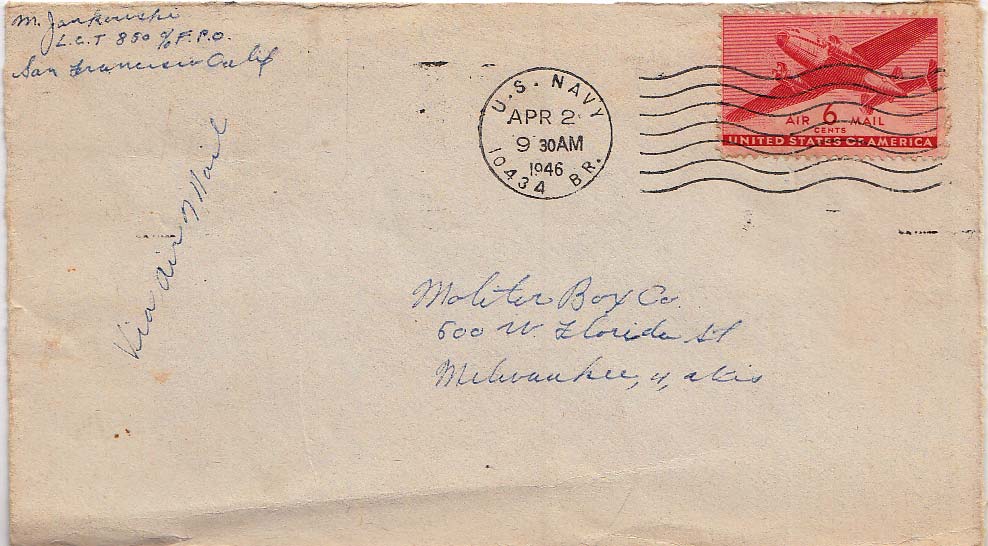 M. Jankowski
L.C.T 850 c/o F.P.O.
San Francisco Calif
U.S. NAVY
APR 2
9 30AM
1946
10434 BR.
AIR 6 MAIL
CENTS
UNITED STATES OF AMERICA
Via Air Mail
Moliter Box Co.
500 W. Florida St
Milwaukee, 4, Wis